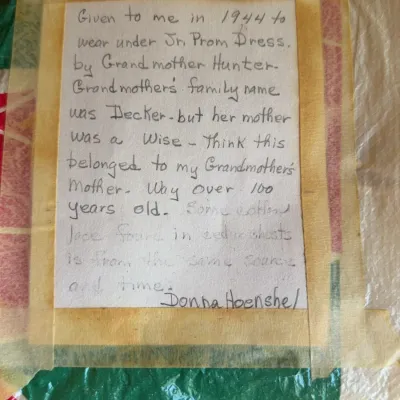 Given to me in 1944 to
wear under Jr. Prom Dress.
by Grandmother Hunter.
Grandmother's family name
was Decker - but her mother
was a Wise - Think this
belonged to my Grandmother's
Mother. Way over 100
years old. Some cotton
lace found in cedar chests
is from the same source
and time.
Donna Hoenshel